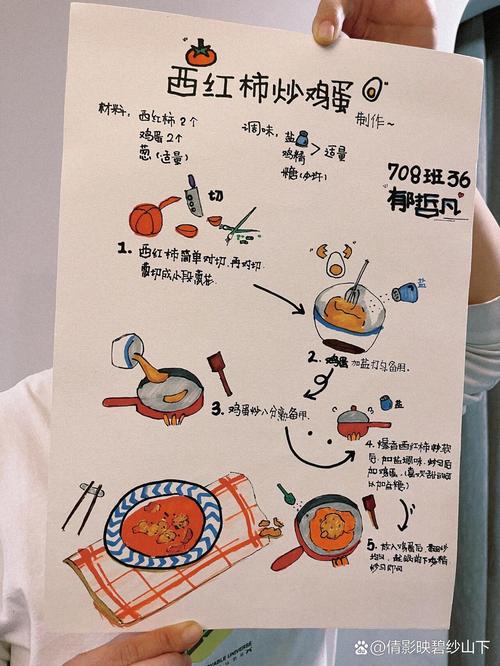 西红柿炒鸡蛋
制作~
材料, 西红柿 2个
鸡蛋 2个
葱 (适量)
调味, 盐
鸡精 > 适量
糖 (少许)
708班36
郁哲凡
切
1. 西红柿简单对切、再对切.
葱切成小段葱花.
盐
2. 鸡蛋加盐打匀备用.
3. 鸡蛋炒八分熟备用.
盐
4. 爆香西红柿炒软
后, 加盐调味, 炒匀后
加鸡蛋, (喜欢甜的可
以加点糖)
5. 放入鸡蛋后, 翻炒
均匀,
炒匀即可
UNIVERSE
@倩影映碧纱山下